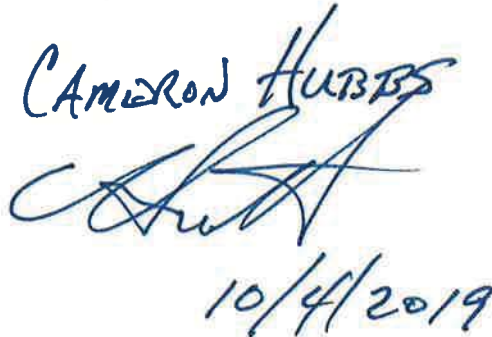 CAMERON HUBBS
10/4/2019